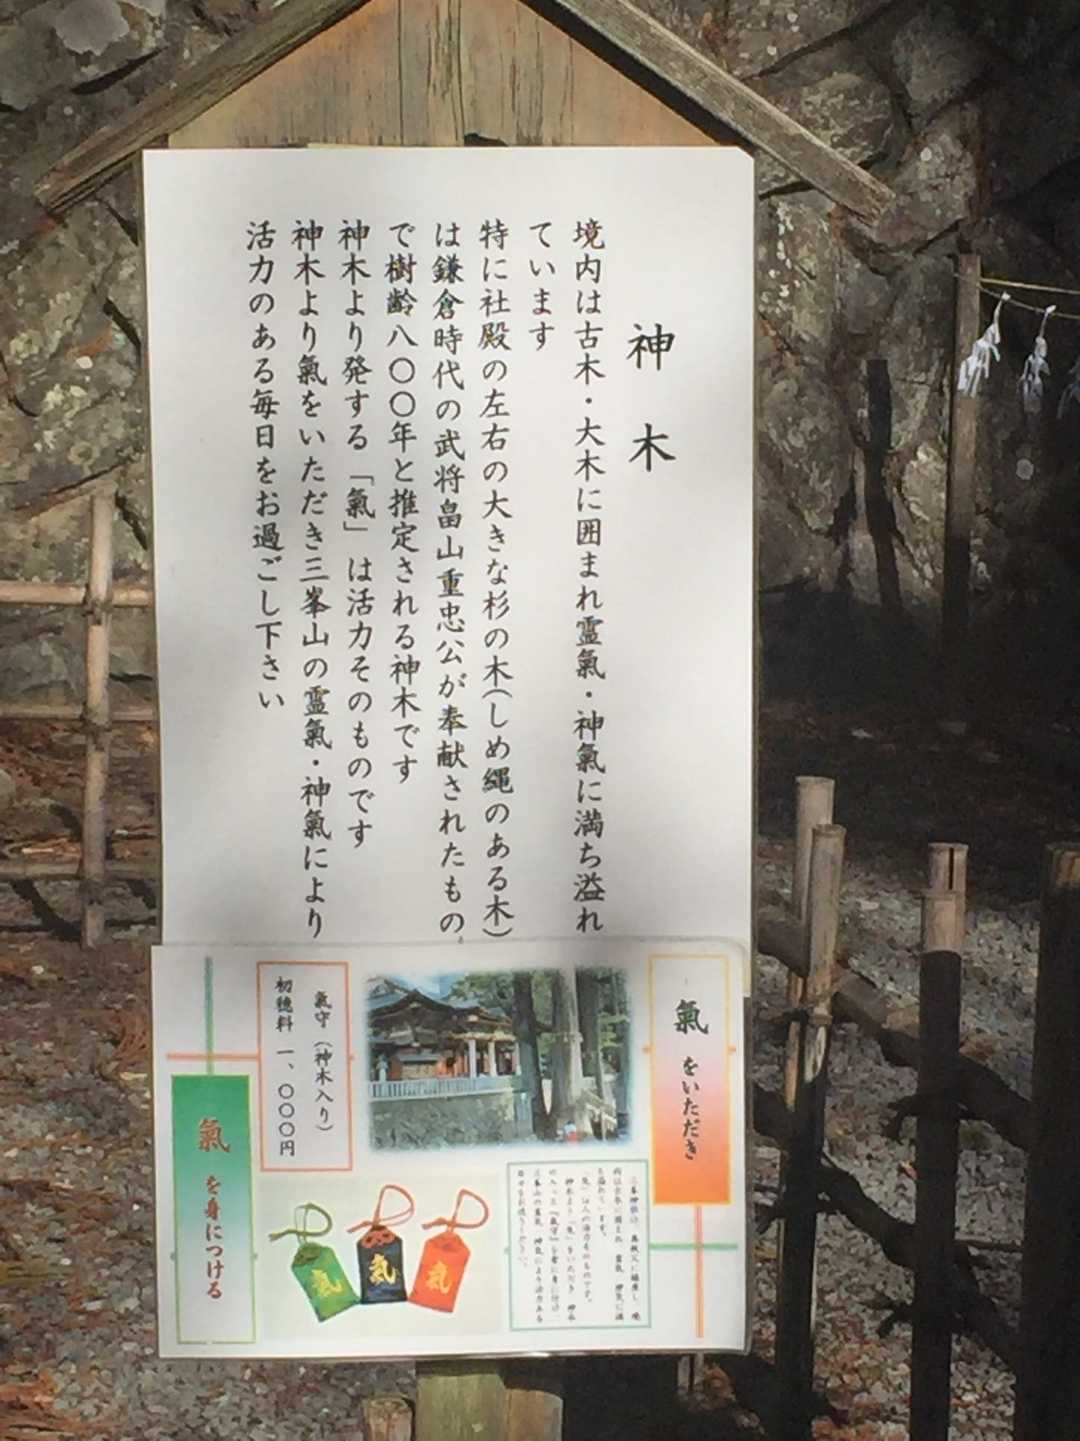 神木
境内は古木・大木に囲まれ霊氣・神氣に満ち溢れ
ています
特に社殿の左右の大きな杉の木(しめ縄のある木)
は鎌倉時代の武将畠山重忠公が奉献されたもの
で樹齢八〇〇年と推定される神木です
神木より発する「氣」は活力そのものです
神木より氣をいただき三峯山の霊氣・神氣により
活力のある毎日をお過ごし下さい
氣をいただき
氣守(神木入り)
初穂料 一、〇〇〇円
氣を身につける
氣
氣
氣